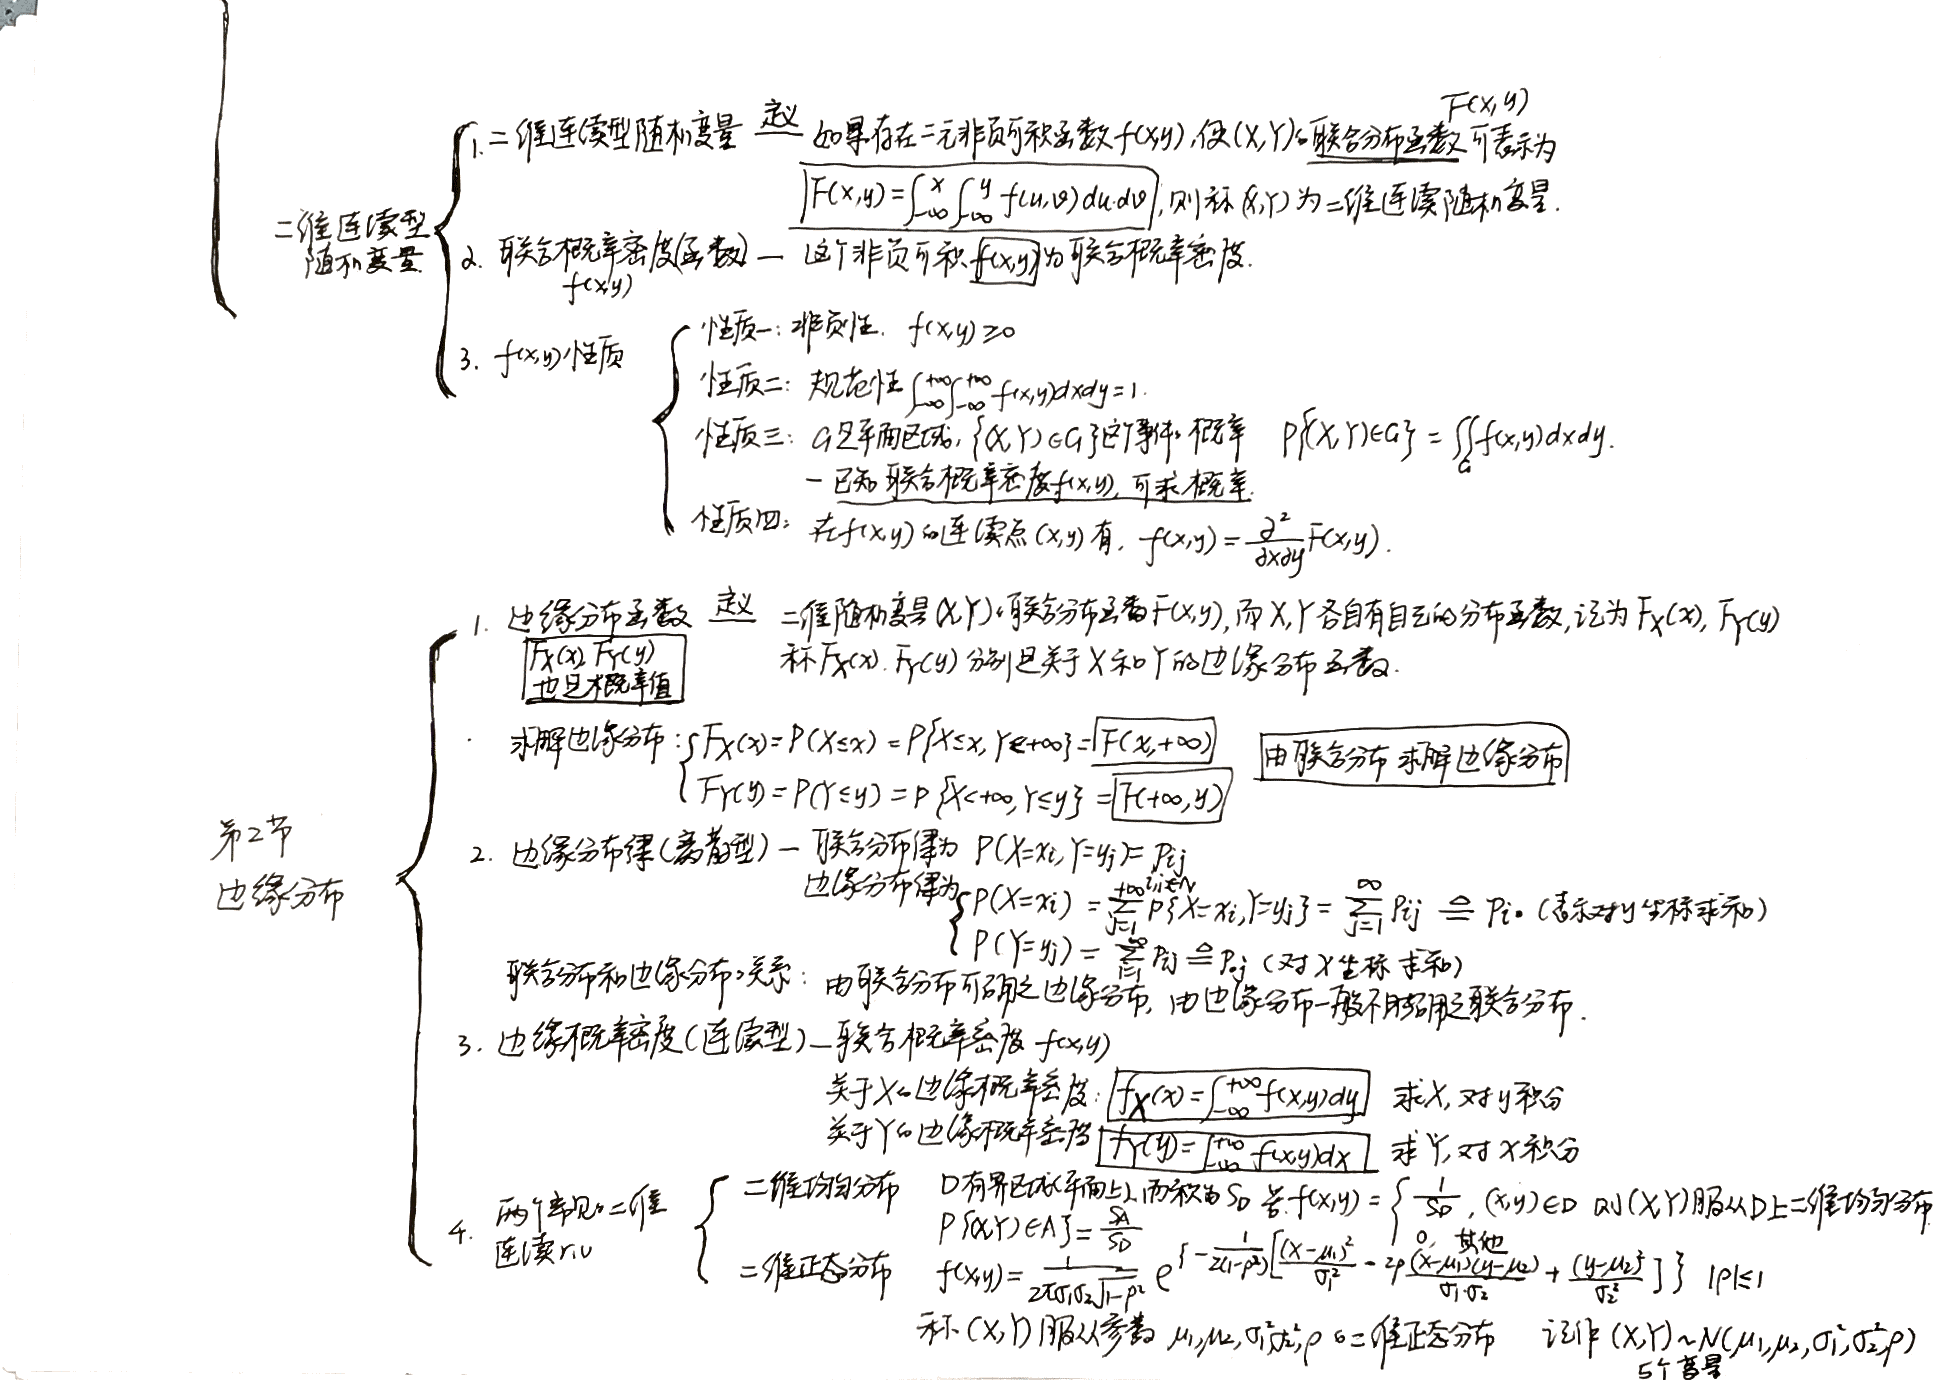 二维连续型
随机变量
F(x,y)
1. 二维连续型随机变量 定义 如果存在二元非负可积函数f(x,y),使(X,Y)的联合分布函数可表示为
F(x,y)=∫_{-∞}^{x}∫_{-∞}^{y} f(u,v)du·dv, 则称(X,Y)为二维连续随机变量.
2. 联合概率密度(函数) — 这个非负可积f(x,y)为联合概率密度.
f(x,y)
3. f(x,y)性质
性质一: 非负性. f(x,y)≥0
性质二: 规范性∫_{-∞}^{+∞}∫_{-∞}^{+∞} f(x,y)dxdy=1.
性质三: G是平面区域, {(X,Y)∈G}这个事件的概率 P{(X,Y)∈G} = ∬_G f(x,y)dxdy.
— 已知联合概率密度f(x,y), 可求概率.
性质四: 在f(x,y)的连续点(x,y)有, f(x,y)=∂²/∂x∂y F(x,y).
第2节
边缘分布
1. 边缘分布函数 定义 二维随机变量(X,Y)的联合分布函数F(x,y),而X,Y各自有自己的分布函数,记为F_X(x), F_Y(y)
F_X(x) F_Y(y) 称F_X(x). F_Y(y) 分别是关于X和Y的边缘分布函数.
也是概率值
求解边缘分布: { F_X(x)=P(X≤x)=P{X≤x, Y<+∞}=F(x,+∞) 由联合分布求解边缘分布
F_Y(y)=P(Y≤y)=P{X<+∞,Y≤y}=F(+∞,y)
2. 边缘分布律(离散型) — 联合分布律为 P(X=x_i,Y=y_j)=P_ij
i,j∈N
边缘分布律为 { P(X=x_i)=∑_{j=1}^{+∞}P{X=x_i,Y=y_j}=∑_{j=1}^{∞}P_ij ≙ P_i• (表示对y坐标求和)
P(Y=y_j)=∑_{i=1}^{∞}P_ij ≙ P_•j (对X坐标求和)
联合分布和边缘分布的关系: 由联合分布可确定边缘分布, 由边缘分布一般不能确定联合分布.
3. 边缘概率密度(连续型) — 联合概率密度 f(x,y)
关于X的边缘概率密度: f_X(x)=∫_{-∞}^{+∞}f(x,y)dy 求X,对y积分
关于Y的边缘概率密度 f_Y(y)=∫_{-∞}^{+∞}f(x,y)dx 求Y,对X积分
4. 两个常见的二维
连续r.v
二维均匀分布 D有界区域(平面上),面积为S_D 若f(x,y)={ 1/S_D, (x,y)∈D 则(X,Y)服从D上二维均匀分布.
P{(X,Y)∈A}=S_A/S_D
0, 其他
二维正态分布 f(x,y)=1/(2πσ₁σ₂√(1-ρ²)) e^{-1/(2(1-ρ²))[(x-μ₁)²/σ₁² - 2ρ(x-μ₁)(y-μ₂)/(σ₁·σ₂) + (y-μ₂)²/σ₂²]} |ρ|≤1
称(X,Y)服从参数 μ₁,μ₂,σ₁²,σ₂²,ρ的二维正态分布 记作 (X,Y)~N(μ₁,μ₂,σ₁²,σ₂²,ρ)
5个变量